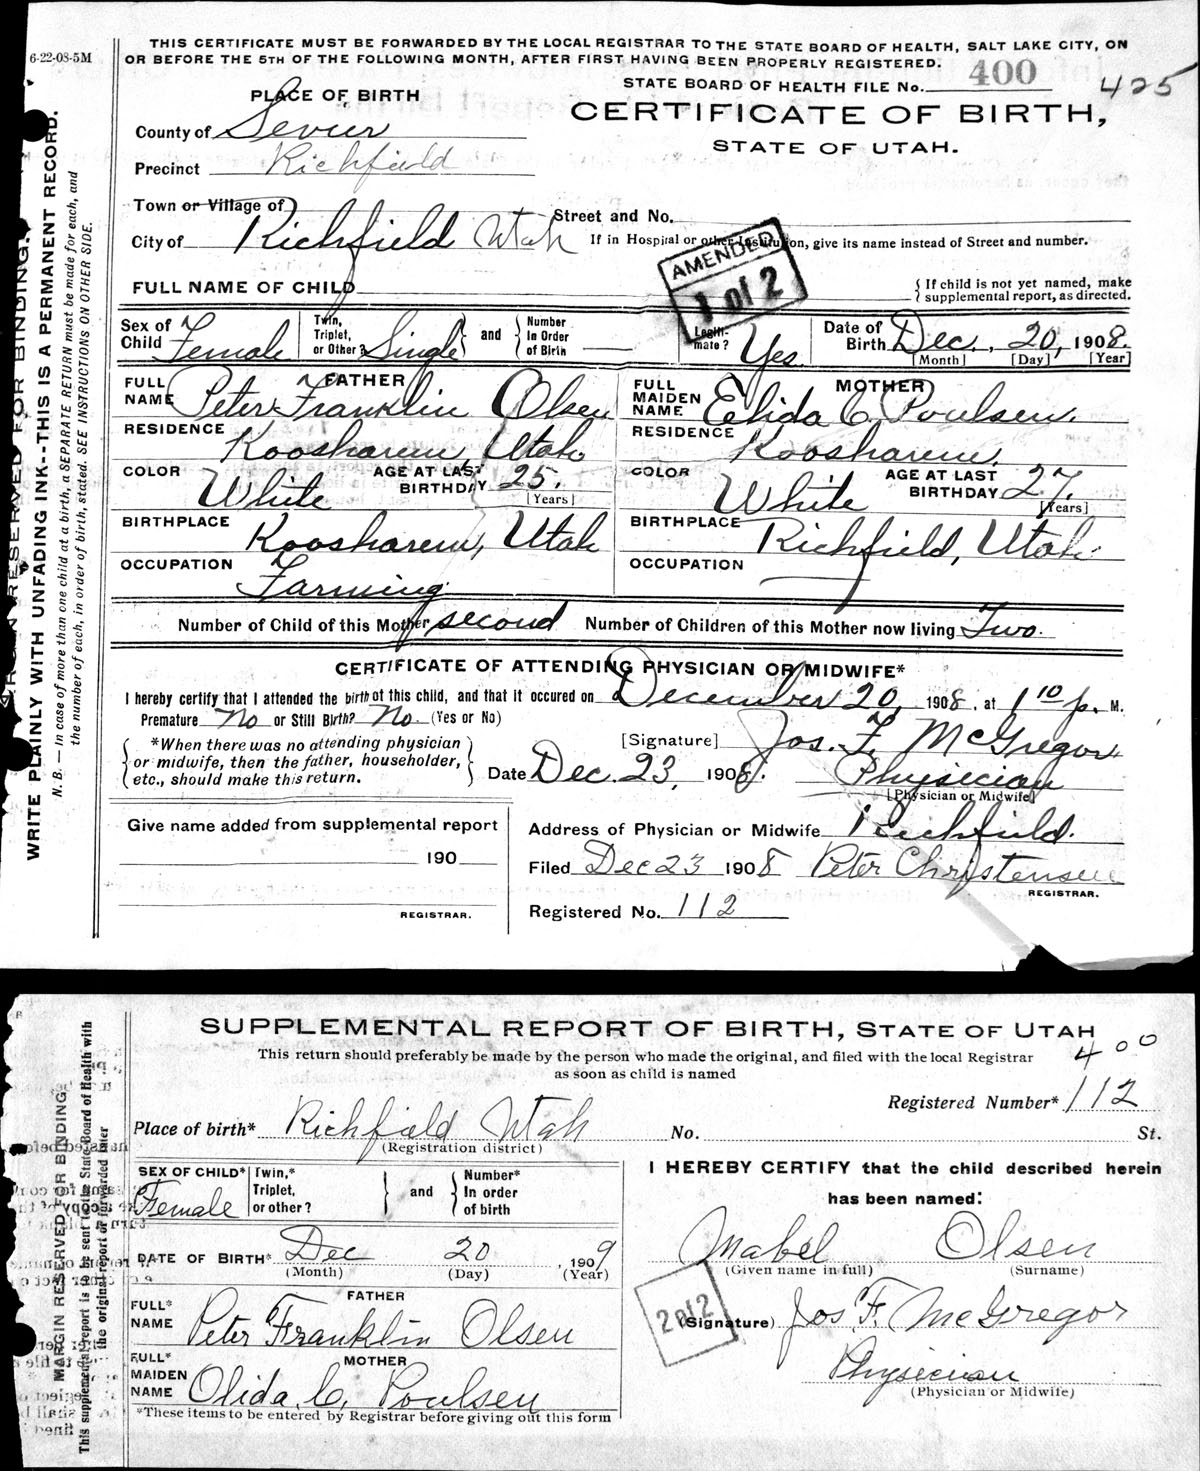 THIS CERTIFICATE MUST BE FORWARDED BY THE LOCAL REGISTRAR TO THE STATE BOARD OF HEALTH, SALT LAKE CITY, ON
OR BEFORE THE 5TH OF THE FOLLOWING MONTH, AFTER FIRST HAVING BEEN PROPERLY REGISTERED.
6-22-08-5M
STATE BOARD OF HEALTH FILE No. 400 425
PLACE OF BIRTH
CERTIFICATE OF BIRTH,
STATE OF UTAH.
County of Sevier
Precinct Richfield
Town or Village of
City of Richfield Utah
Street and No.
If in Hospital or other Institution, give its name instead of Street and number.
AMENDED
1 of 2
FULL NAME OF CHILD
{ If child is not yet named, make
supplemental report, as directed.
Sex of Child Female
Twin, Triplet, or Other? Single } and { Number In Order of Birth
Legitimate? Yes
Date of Birth Dec. 20, 1908.
[Month] [Day] [Year]
FATHER
FULL NAME Peter Franklin Olsen
RESIDENCE Koosharem, Utah
COLOR White
AGE AT LAST BIRTHDAY 25.
[Years]
BIRTHPLACE Koosharem, Utah
OCCUPATION Farming
MOTHER
FULL MAIDEN NAME Elida C. Poulsen.
RESIDENCE Koosharem.
COLOR White
AGE AT LAST BIRTHDAY 27.
[Years]
BIRTHPLACE Richfield, Utah.
OCCUPATION
Number of Child of this Mother second Number of Children of this Mother now living Two.
CERTIFICATE OF ATTENDING PHYSICIAN OR MIDWIFE*
I hereby certify that I attended the birth of this child, and that it occured on December 20, 1908, at 1 10 p. M.
Premature No or Still Birth? No. (Yes or No)
{ *When there was no attending physician
or midwife, then the father, householder,
etc., should make this return. }
[Signature] Jos. F. McGregor
Date Dec. 23, 1908. Physician
[Physician or Midwife]
Give name added from supplemental report
190
REGISTRAR.
Address of Physician or Midwife Richfield.
Filed Dec 23 1908 Peter Christensen
REGISTRAR.
Registered No. 112
MARGIN RESERVED FOR BINDING.
WRITE PLAINLY WITH UNFADING INK--THIS IS A PERMANENT RECORD.
N. B. — In case of more than one child at a birth, a SEPARATE RETURN must be made for each, and
the number of each, in order of birth, stated. SEE INSTRUCTIONS ON OTHER SIDE.
SUPPLEMENTAL REPORT OF BIRTH, STATE OF UTAH
This return should preferably be made by the person who made the original, and filed with the local Registrar
as soon as child is named
400
Registered Number* 112
Place of birth* Richfield Utah No. St.
(Registration district)
SEX OF CHILD* Female
Twin,* Triplet, or other? } and { Number* In order of birth
DATE OF BIRTH* Dec 20, 1909
(Month) (Day) (Year)
FATHER
FULL* NAME Peter Franklin Olsen
MOTHER
FULL* MAIDEN NAME Olida C. Poulsen
*These items to be entered by Registrar before giving out this form
I HEREBY CERTIFY that the child described herein
has been named:
Mabel Olsen
(Given name in full) (Surname)
2 of 2
(Signature) Jos F. McGregor
Physician
(Physician or Midwife)
MARGIN RESERVED FOR BINDING.
This supplemental report is to be sent to the State Board of Health with
the original report or forwarded later